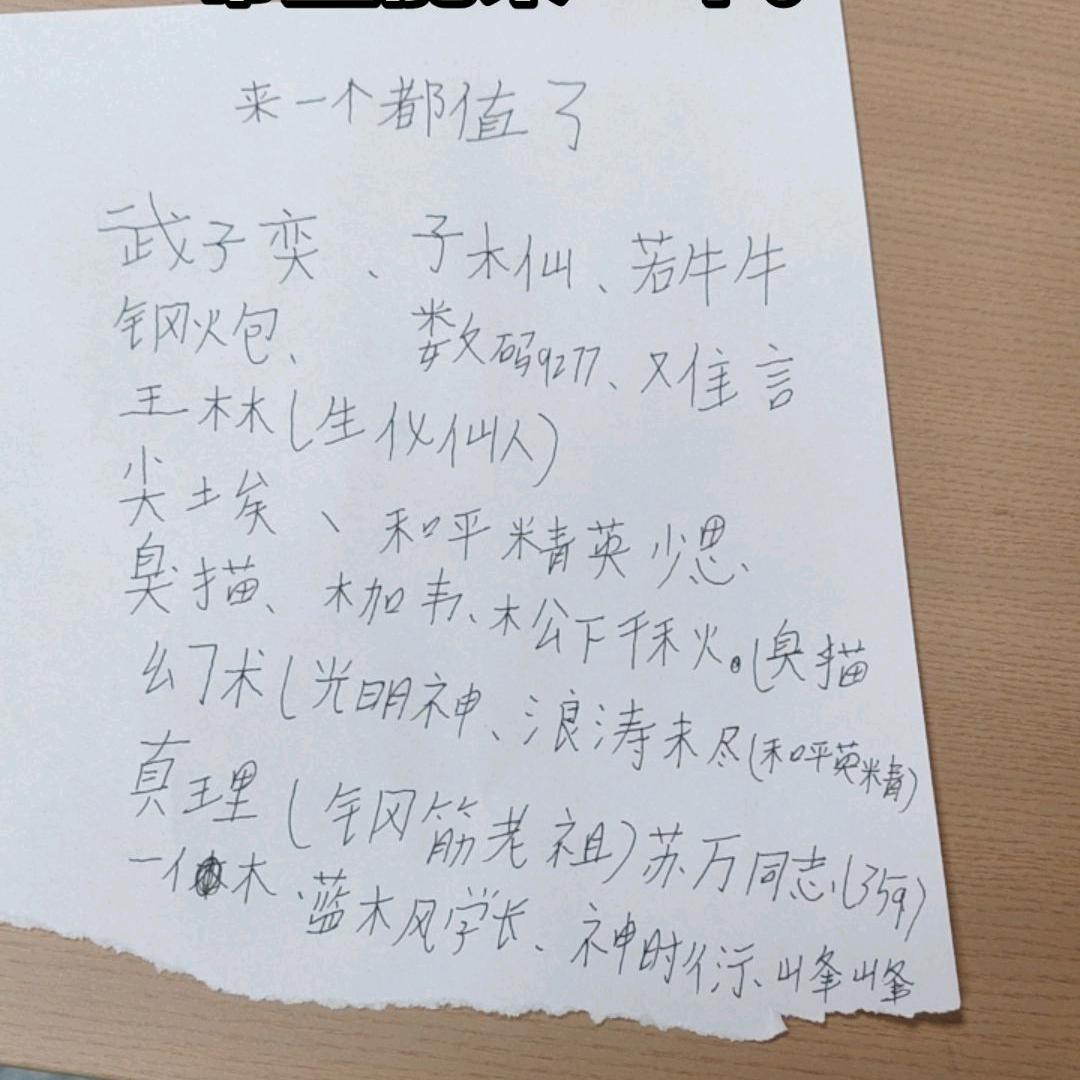 来一个都值了
武子奕、子木仙、若牛牛
钢火包、数码9277、又隹言
王林(生仪仙人)
尖土埃、和平精英少思、
臭描、木加韦、木公下千禾火。(臭描
幺㇆术(光明神、浪涛未尽(和平英精)
真理(钢筋老祖)苏万同志(359)
一亻木、蓝木风学长、神时彳亍、峰峰